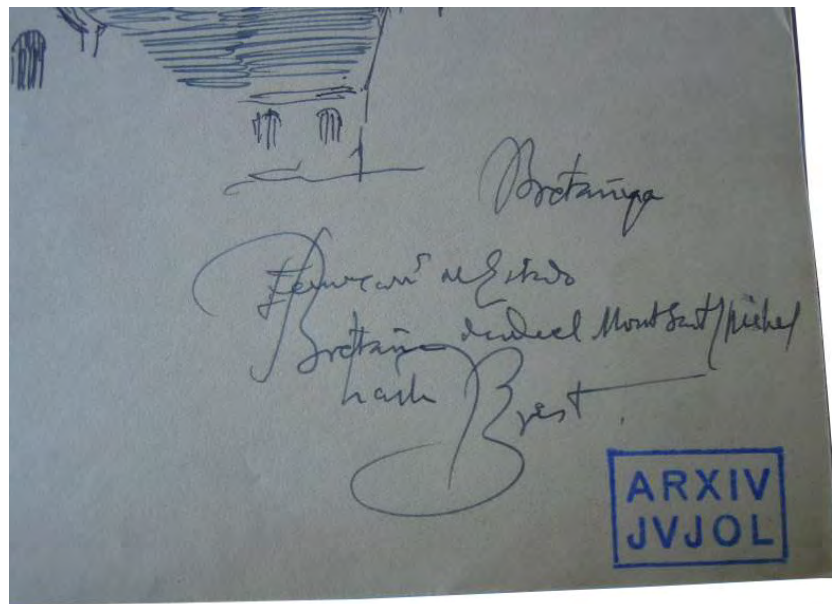 Bretanya
Ferrocarril del Estado
Bretaña desde el Mont Saint Michel
hasta Brest.
ARXIV
JVJOL